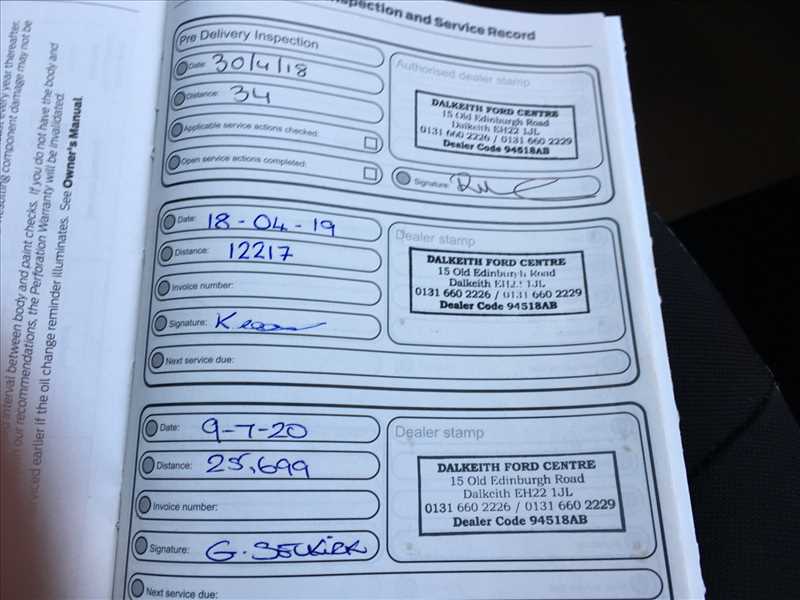 every year thereafter.
resulting component damage may not be
interval between body and paint checks. If you do not have the body and
our recommendations, the Perforation Warranty will be invalidated.
viced earlier if the oil change reminder illuminates. See Owner's Manual.
Inspection and Service Record
Pre Delivery Inspection
Date: 30/4/18
Distance: 34
Applicable service actions checked:
Open service actions completed:
Authorised dealer stamp
DALKEITH FORD CENTRE
15 Old Edinburgh Road
Dalkeith EH22 1JL
0131 660 2226 / 0131 660 2229
Dealer Code 94518AB
Signature:
Date: 18-04-19
Distance: 12217
Invoice number:
Signature:
Next service due:
Dealer stamp
DALKEITH FORD CENTRE
15 Old Edinburgh Road
Dalkeith EH22 1JL
0131 660 2226 / 0131 660 2229
Dealer Code 94518AB
Date: 9-7-20
Distance: 25,699
Invoice number:
Signature: G. SELKIRK
Next service due:
Dealer stamp
DALKEITH FORD CENTRE
15 Old Edinburgh Road
Dalkeith EH22 1JL
0131 660 2226 / 0131 660 2229
Dealer Code 94518AB